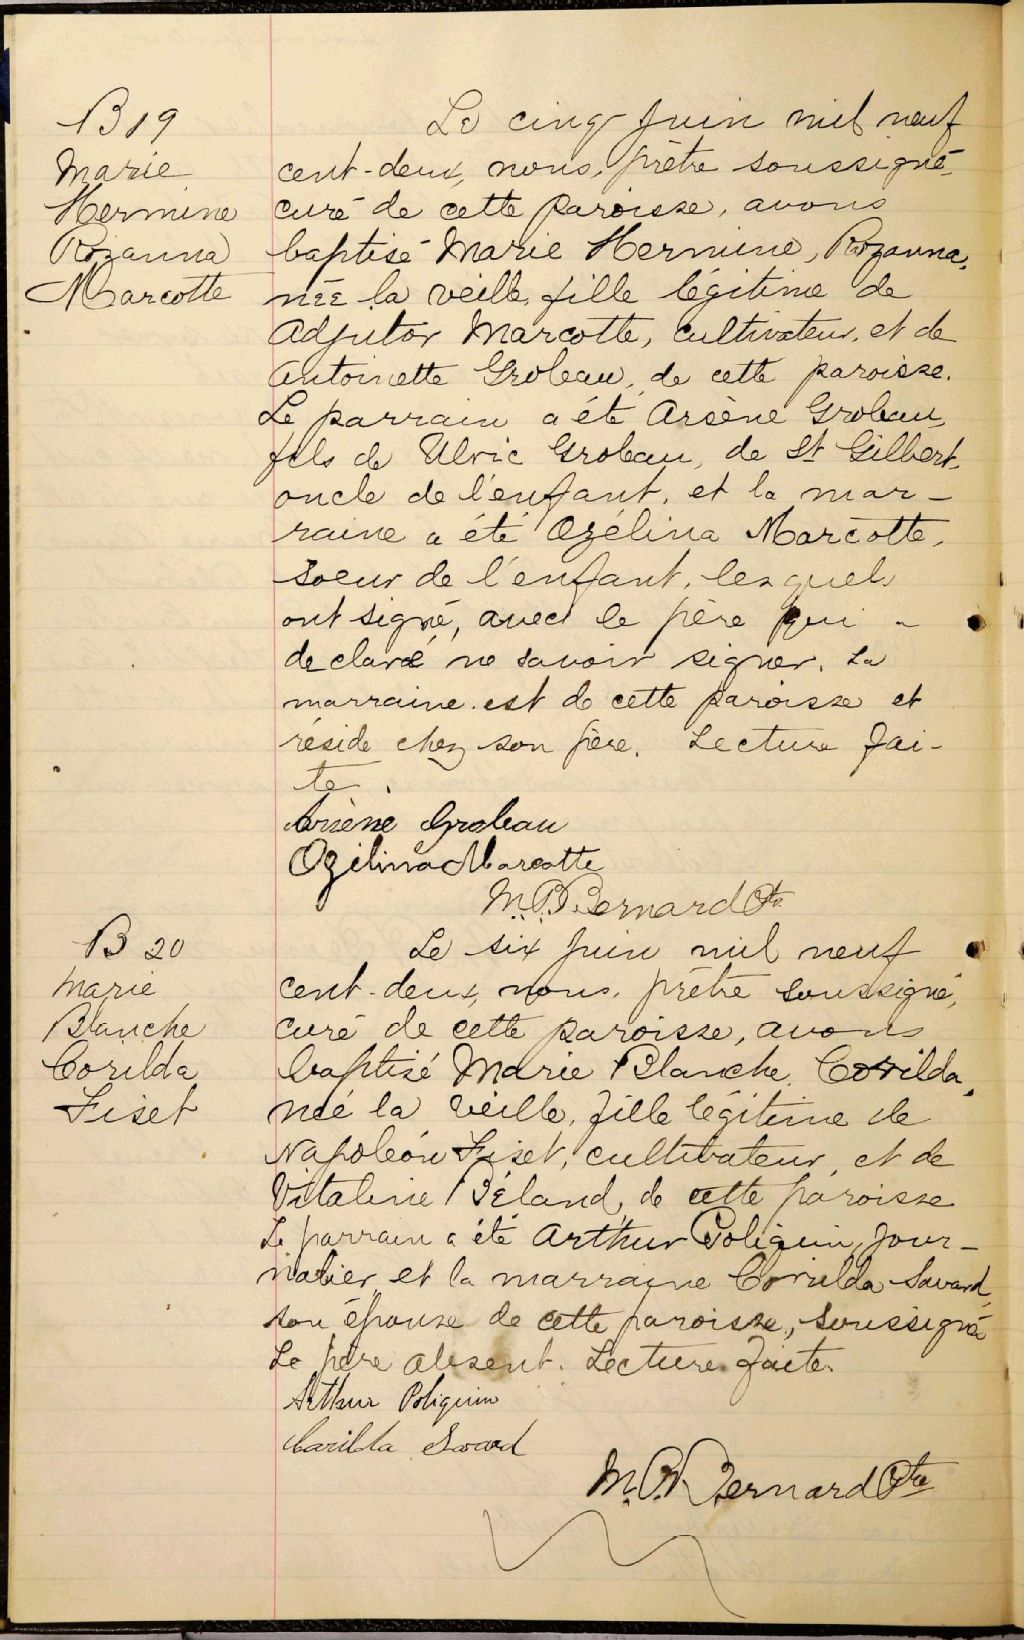 B 19
Marie
Hermine
Rozanna
Marcotte
Le cinq juin mil neuf
cent-deux, nous, prêtre soussigné,
curé de cette paroisse, avons
baptisé Marie Hermine, Rozanna,
née la veille, fille légitime de
Adjutor Marcotte, cultivateur, et de
Antoinette Groleau, de cette paroisse.
Le parrain a été Arsène Groleau,
fils de Ulric Groleau, de St Gilbert,
oncle de l'enfant, et la mar-
raine a été Ozélina Marcotte,
soeur de l'enfant, lesquels
ont signé, avec le père qui a
declaré ne savoir signer. La
marraine est de cette paroisse et
réside chez son père. Lecture fai-
te.
Arsène Groleau
Ozélina Marcotte
M. B. Bernard Ptre
B 20
Marie
Blanche
Corilda
Fiset
Le six juin mil neuf
cent-deux, nous, prêtre soussigné,
curé de cette paroisse, avons
baptisé Marie Blanche, Corilda,
née la veille, fille légitime de
Napoléon Fiset, cultivateur, et de
Vitaline Béland, de cette paroisse
Le parrain a été Arthur Poliquin, jour-
nalier, et la marraine Corilda Savard,
son épouse de cette paroisse, soussignés
Le père absent. Lecture faite.
Arthur Poliquin
Corilda Savard
M. B. Bernard Ptre